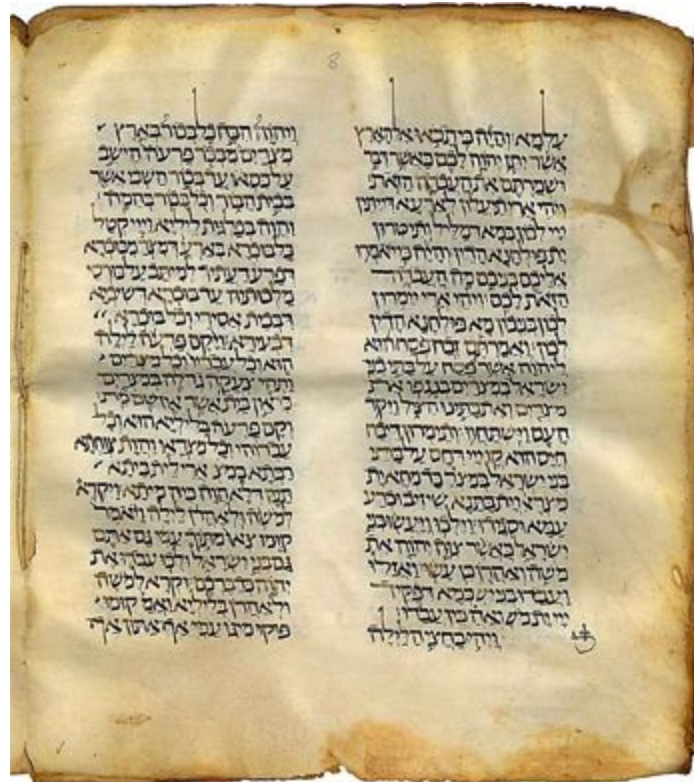 עלמא והיה כי תבאו אל הארץ
אשר יתן יהוה לכם כאשר דבר
ושמרתם את העבדה הזאת
ויהי ארי תיעלון לארעא דייתין
ייי לכון כמא דמליל ותיטרון
ית פולחנא הדין והיה כי יאמרו
אליכם בניכם מה העבדה
הזאת לכם ויהי ארי יימרון
לכון בניכון מא פולחנא הדין
לכון ואמרתם זבח פסח הוא
ליהוה אשר פסח על בתי בני
ישראל במצרים בנגפו את
מצרים ואת בתינו הציל ויקד
העם וישתחוו ותימרון דיבח
חייס הוא קדם ייי דחס על בתי
בני ישראל במצר כד מחא ית
מצראי וית בתנא שיזיב וכרע
עמא וסגידו וילכו ויעשו בני
ישראל כאשר צוה יהוה את
משה ואהרן כן עשו ואזלו
ועבדו בני יש כמא דפקיד
ייי ית משה ואה כין עבדו
ויהי בחצי הלילה
ויהוה הכה כל בכור בארץ
מצרים מבכר פרעה הישב
על כסאו עד בכור השבי אשר
בבית הבור וכל בכור בהמה
והוה בפלגות ליליא וייי קטל
כל בוכרא בארעא דמצר מבוכרא
דפרעה דעתיד למיתב על כורסי
מלכותיה עד בוכרא דשיביא
דבבית אסירי וכל בוכרא
דבעירא ויקם פרעה לילה
הוא וכל עבדיו וכל מצרים
ותהי צעקה גדלה במצרים
כי אין בית אשר אין שם מת
וקם פרעה בליליא הוא וכל
עבדוהי וכל מצראי והות צוחתא
רבתא במצ ארי לית ביתא
תמן דלא הוה ביה מיתא ויקרא
למשה ולאהרן לילה ויאמר
קומו צאו מתוך עמי גם אתם
גם בני ישראל ולכו עבדו את
יהוה כדברכם וקרא למשה
ולאהרן בליליא ואמ קומו
פוקו מגו עמי אף אתון אף